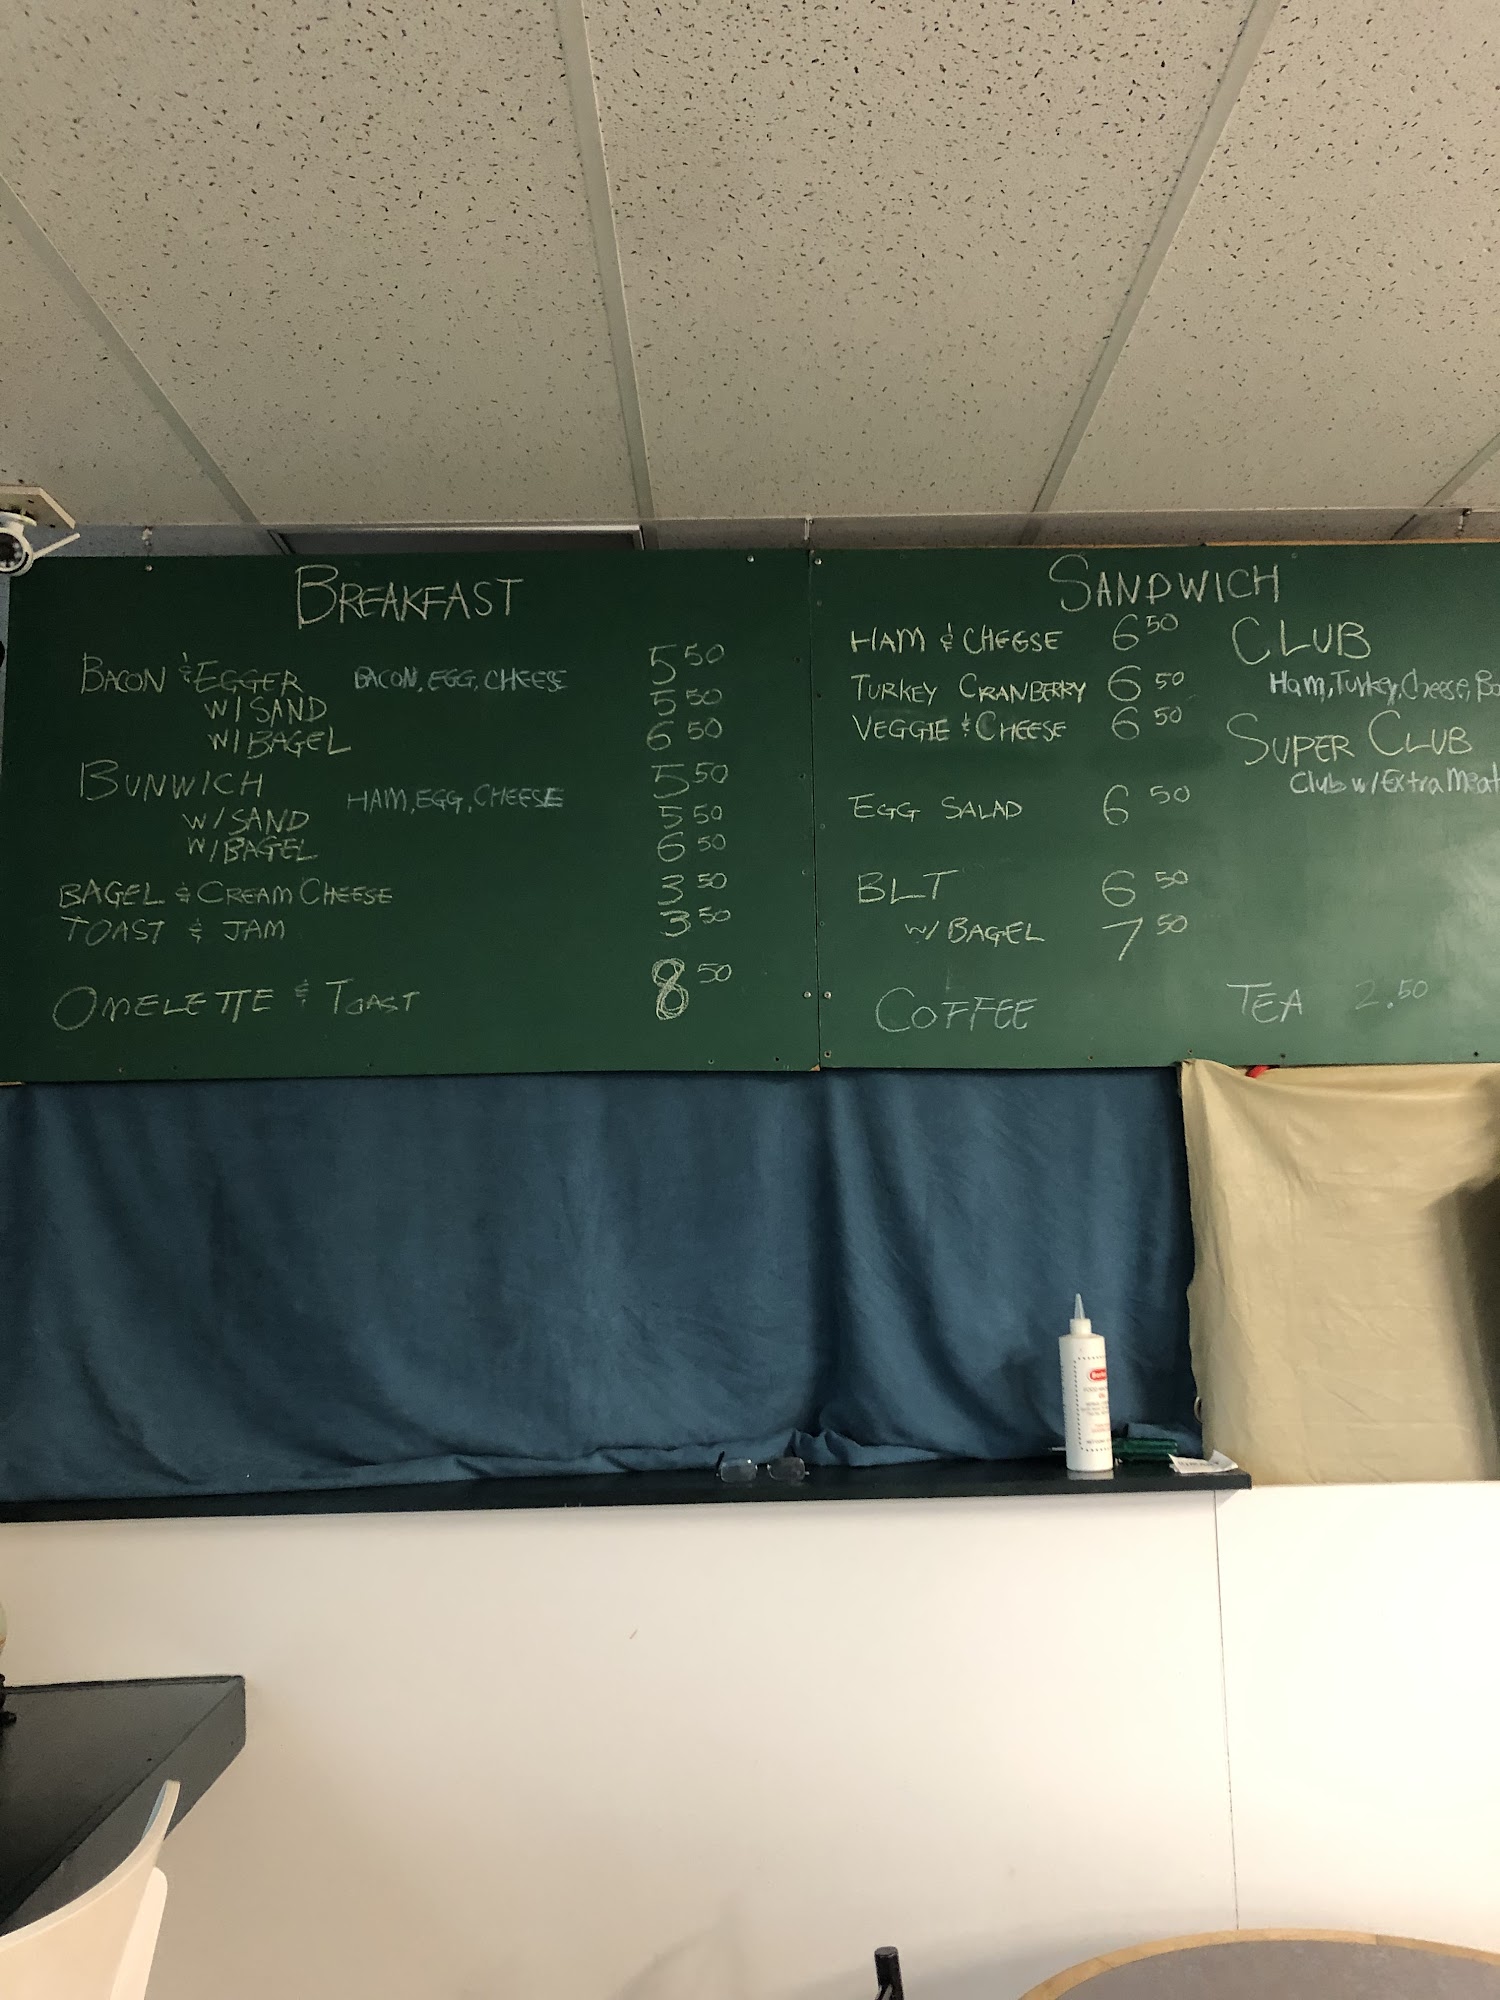 BREAKFAST
BACON & EGGER BACON, EGG, CHEESE 5 50
W/ SAND 5 50
W/ BAGEL 6 50
BUNWICH HAM, EGG, CHEESE 5 50
W/ SAND 5 50
W/ BAGEL 6 50
BAGEL & CREAM CHEESE 3 50
TOAST & JAM 3 50
OMELETTE & TOAST 8 50
SANDWICH
HAM & CHEESE 6 50
TURKEY CRANBERRY 6 50
VEGGIE & CHEESE 6 50
EGG SALAD 6 50
BLT 6 50
W/ BAGEL 7 50
CLUB
Ham, Turkey, Cheese,
SUPER CLUB
Club w/ Extra Meat
COFFEE
TEA 2.50